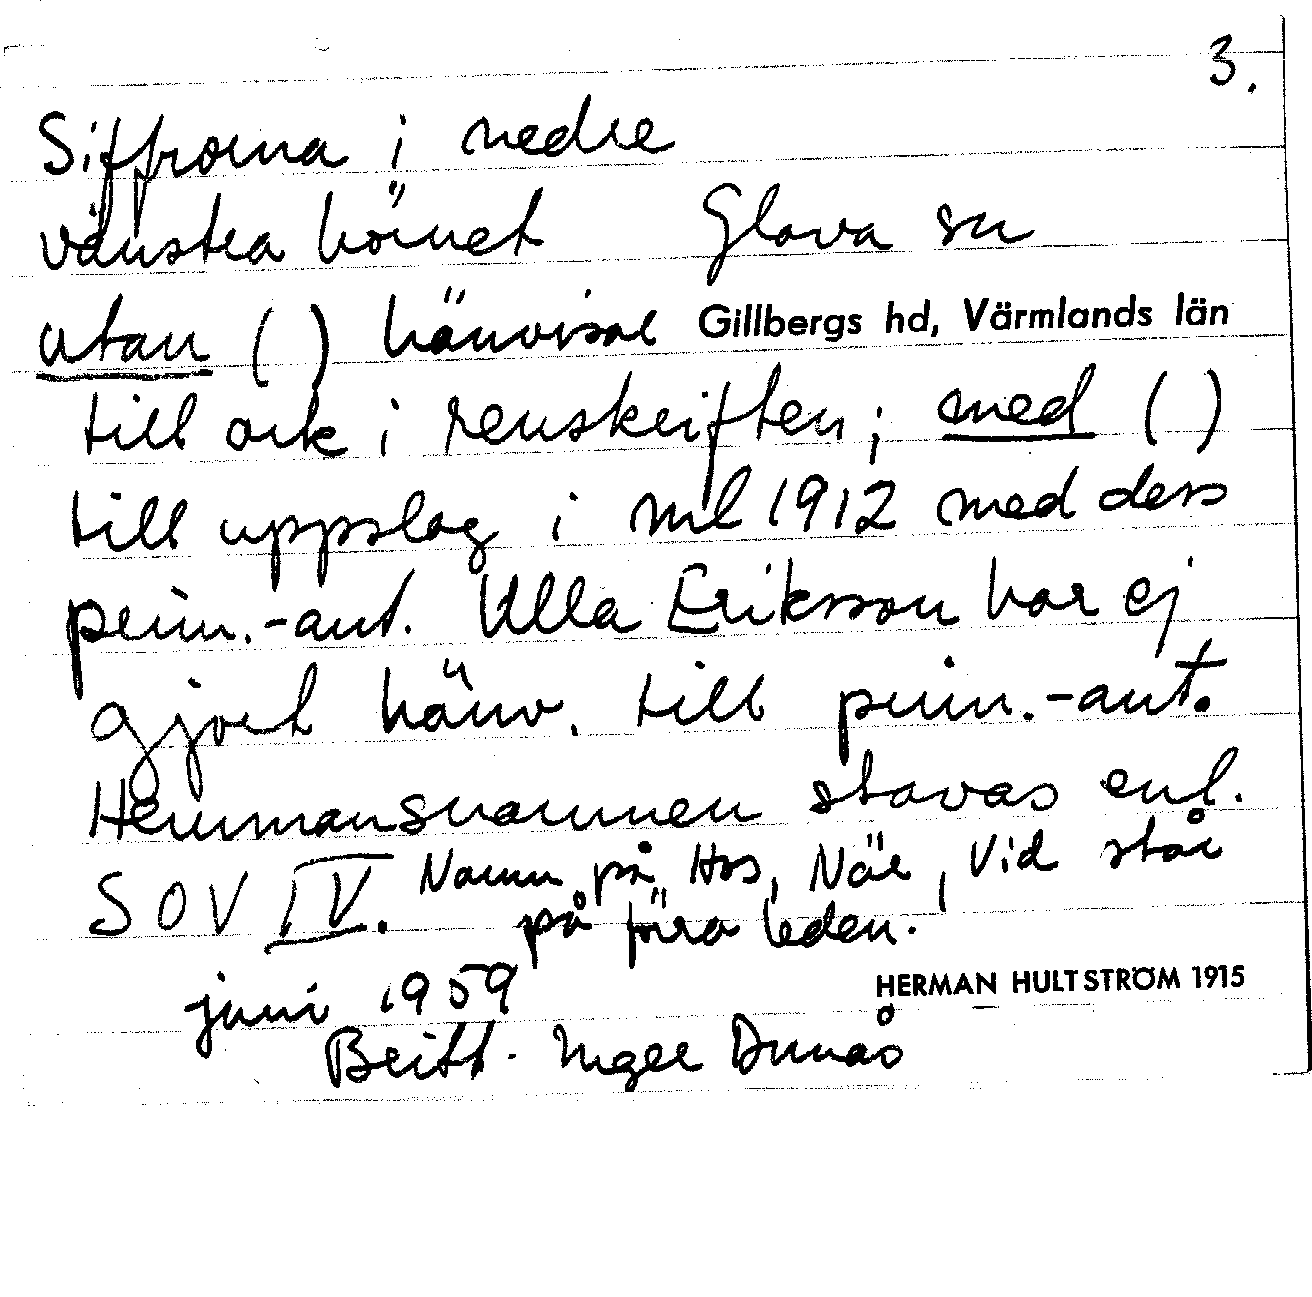 3.
Siffrorna i nedre
vänstra hörnet Glava sn
utan ( ) hänvisar Gillbergs hd, Värmlands län
till ark i renskriften; med ( )
till uppslag i ml 1912 med dess
prim.-ant. Ulla Eriksson har ej
gjort hänv. till prim.-ant.
Hemmansnamnen stavas enl.
SOV IV. Namn på Hos, När, Vid står
på förra leden.
juni 1959 HERMAN HULTSTRÖM 1915
Britt-Inger Dunås